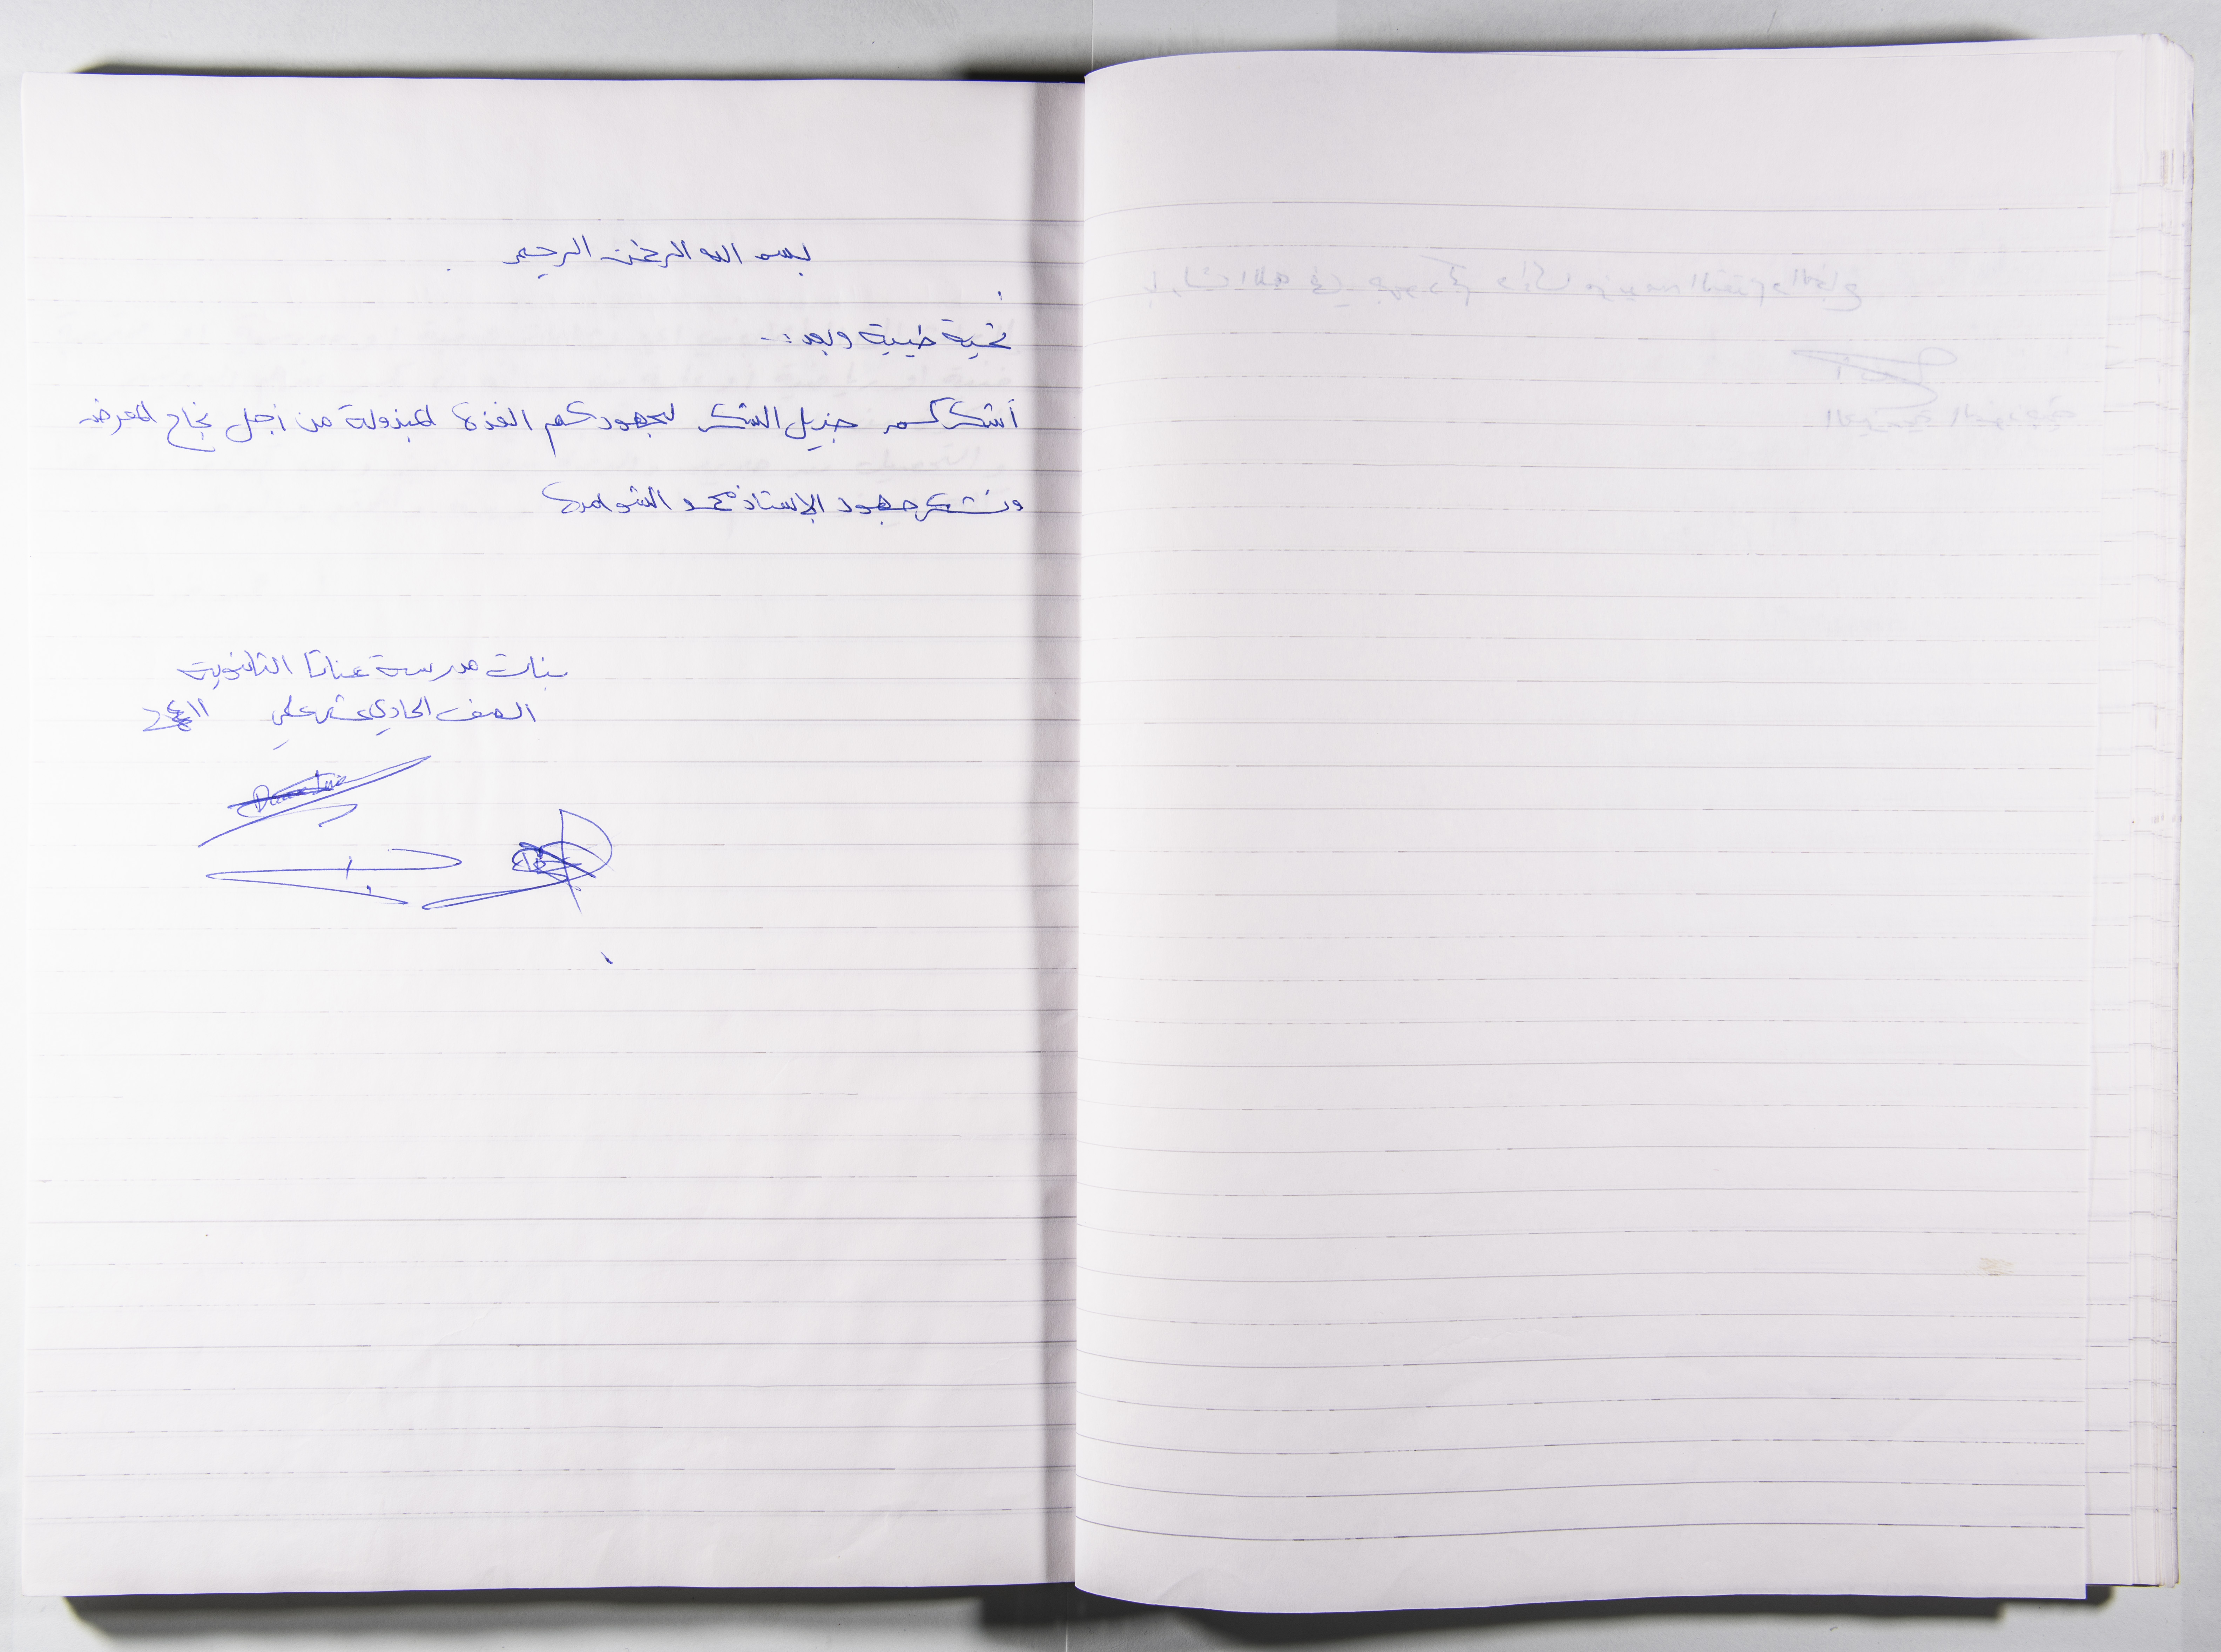 بسم الله الرحمن الرحيم
تحية طيبة وبعد :-
أشكركم جزيل الشكر لجهودكم الفذة المبذولة من أجل نجاح المعرض
ونشكر جهود الاستاذ محمد الشوامرة
بنات مدرسة عناتا الثانوية
الصف الحادي عشر علمي ١١